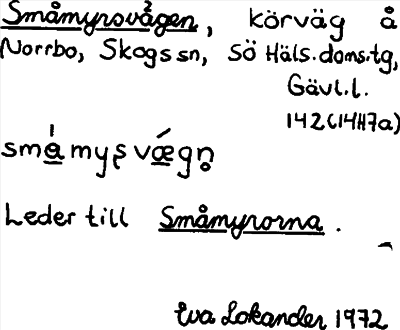 Småmyrovägen, körväg å
Norrbo, Skogs sn, Sö Häls. doms.tg,
Gävl.l.
142(14H7a)
småmyṣvægn̥
Leder till Småmyrorna.
Eva Lokander 1972